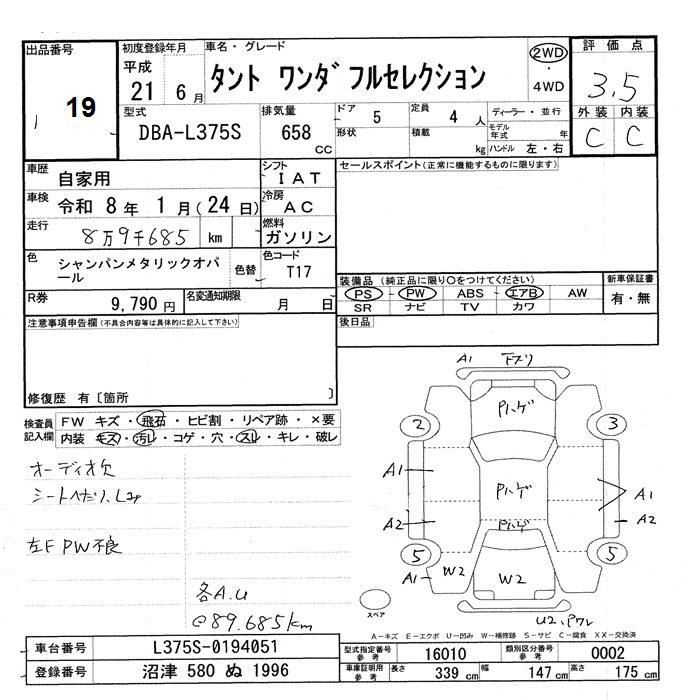 出品番号
19
初度登録年月
平成
21 6 月
車名・グレード
タント ワンダフルセレクション
2WD
・
4WD
評価点
3.5
外装 内装
C C
型式
DBA-L375S
排気量
658
CC
ドア
5
形状
定員
4 人
積載
kg
ディーラー・並行
モデル年式 年
ハンドル 左・右
車歴
自家用
シフト
IAT
車検
令和 8年 1月(24日)
冷房
AC
走行
8万9千685 km
燃料
ガソリン
色
シャンパンメタリックオパ
ール
色替
色コード
T17
R券
9,790 円
名変通知期限
月 日
セールスポイント(正常に機能するものに限ります)
装備品 (純正品に限り○をつけてください)
PS ・ PW ・ ABS ・ エアB ・ AW
SR ナビ TV カワ
新車保証書
有・無
後日品
注意事項申告欄(不具合内容等は具体的に記入して下さい)
修復歴 有〔箇所 〕
検査員
記入欄
FW キズ・飛石・ヒビ割・リペア跡・×要
内装 キズ・汚レ・コゲ・穴・スレ・キレ・破レ
オーディオ欠
シートへたり、
左F PW不良
各A.U
@89.685km
A1 下スリ
Pハゲ
2 3
A1
Pハゲ
A1
A2
A2
Pハゲ
5 5
A1 W2
W2
U2、Pワレ
スペア
A-キズ E-エクボ U-凹み W-補修跡 S-サビ C-腐食 XX-交換済
車台番号
L375S-0194051
型式指定番号
参考
16010
類別区分番号
参考
0002
登録番号
沼津 580 ぬ 1996
車庫証明用
参考
長さ
339 cm
幅
147 cm
高さ
175 cm